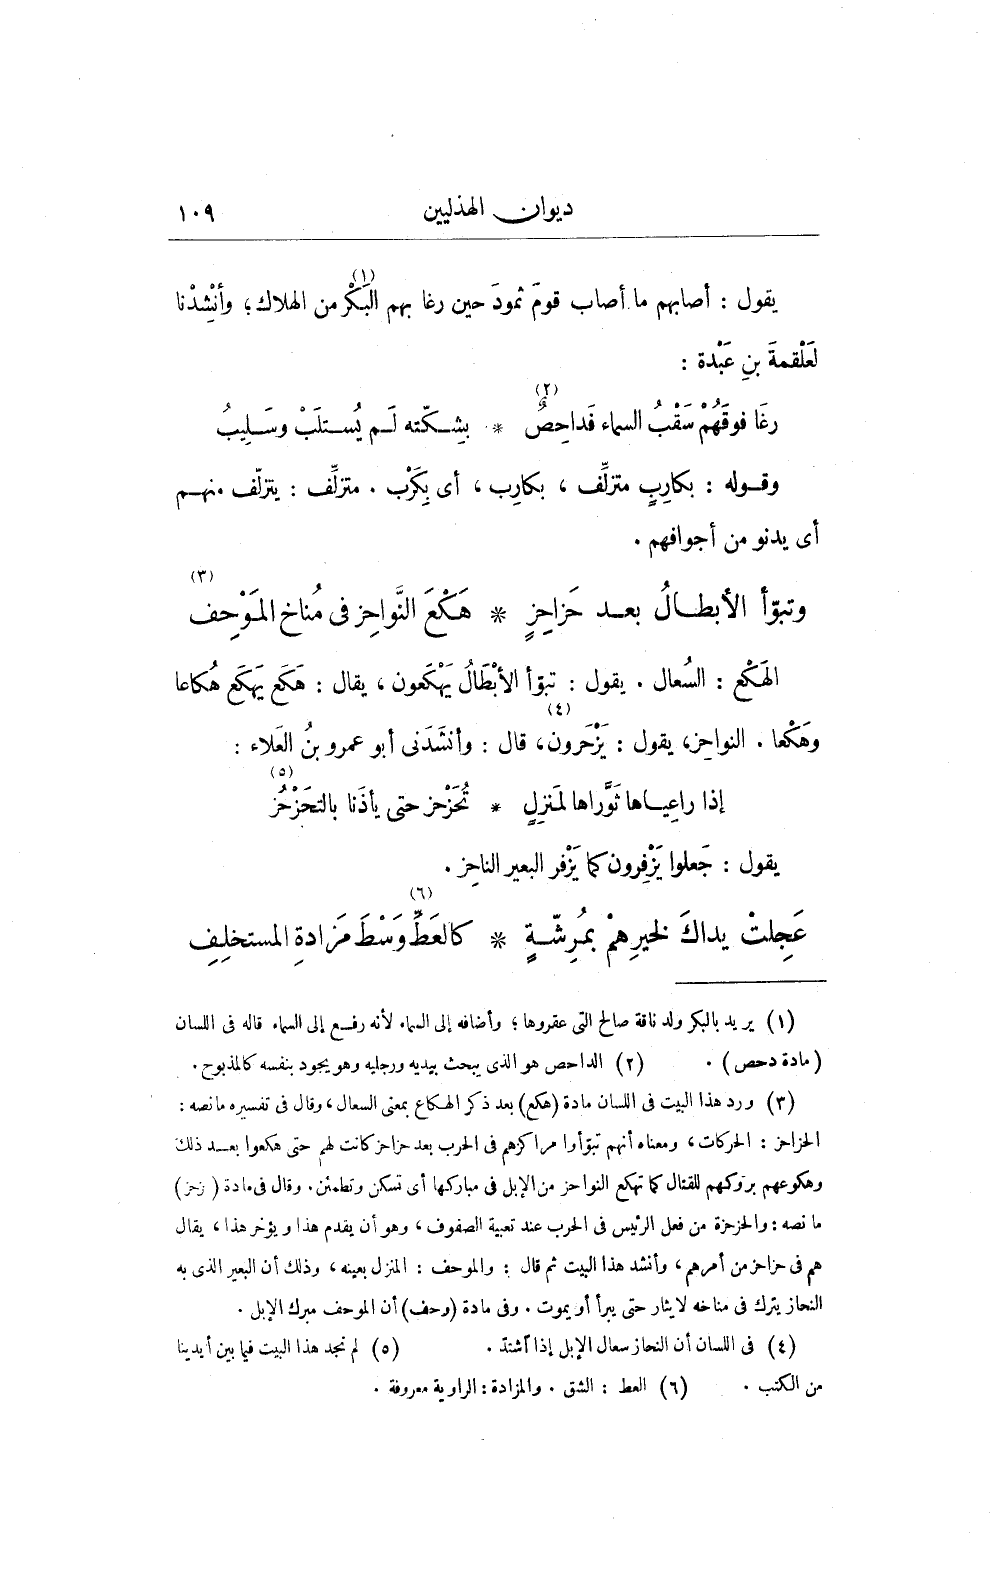 ديوان الهذليين ١٠٩
يقول : أصابهم ما أصاب قومَ ثمودَ حين رغا بهم البَكْر (١) من الهلاك؛ وأنْشِدْنا
لعَلْقمةَ بنِ عَبْدة :
رغَا فوقَهُمْ سَقْبُ السماء فَداحِصٌ (٢) * بِشِكّته لَم يُستلَبْ وسَليبُ
وقوله : بكارِبٍ متزلِّف ، بكارِب ، أى بِكَرْب . متزلِّف : يتزلّف منهم
أى يدنو من أجوافهم .
وتبوّأ الأبطالُ بعد حَزاحِزٍ * هَكْعَ النَّواحِز فى مُناخ المَوْحِف (٣)
الهَكْع : السُعال . يقول : تبوّأ الأبْطَالُ يَهْكَعون ، يقال : هَكَع يَهكَع هُكاعا
وهَكْعا . النواحِز، يقول : يَزْحَرون (٤)، قال : وأنشَدَنى أبو عمرو بنُ العَلاء :
إذا راعِياها ثَوَّراها لمَنزِلٍ * تُحَزْحز حتى يأذَنا بالتحَزْحُزِ (٥)
يقول : جَعلوا يَزْفِرون كما يَزْفر البعير الناحِز .
عَجِلتْ يداكَ لخيرِهمْ بمُرِشّةٍ * كالعَطِّ (٦) وَسْطَ مَزادةِ المستخلِفِ
(١) يريد بالبكر ولد ناقة صالح التى عقروها ؛ وأضافه إلى السماء لأنه رفع إلى السماء قاله فى اللسان
(مادة دحص) . (٢) الداحص هو الذى يبحث بيديه ورجليه وهو يجود بنفسه كالمذبوح .
(٣) ورد هذا البيت فى اللسان مادة (هكع) بعد ذكر الهكاع بمعنى السعال ، وقال فى تفسيره ما نصه :
الحزاحز : الحركات ، ومعناه أنهم تبوّأوا مراكزهم فى الحرب بعد حزاحز كانت لهم حتى هكعوا بعد ذلك
وهكوعهم بروكهم للقتال كما تهكع النواحز من الإبل فى مباركها أى تسكن وتطمئن . وقال فى مادة (نحز)
ما نصه : والحزحزة من فعل الرئيس فى الحرب عند تعبية الصفوف ، وهو أن يقدم هذا ويؤخر هذا ، يقال
هم فى حزاحز من أمرهم ، وأنشد هذا البيت ثم قال : والموحف : المنزل بعينه ، وذلك أن البعير الذى به
النحاز يترك فى مناخه لا يثار حتى يبرأ أو يموت . وفى مادة (وحف) أن الموحف مبرك الإبل .
(٤) فى اللسان أن النحاز سعال الإبل إذا اشتد . (٥) لم نجد هذا البيت فيما بين أيدينا
من الكتب . (٦) العط : الشق . والمزادة : الراوية معروفة .